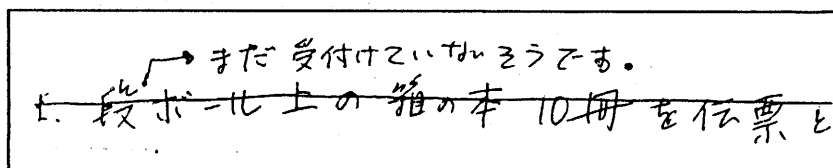 まだ受付けていないそうです。
1. 段ボール上の箱の本 10冊を伝票と